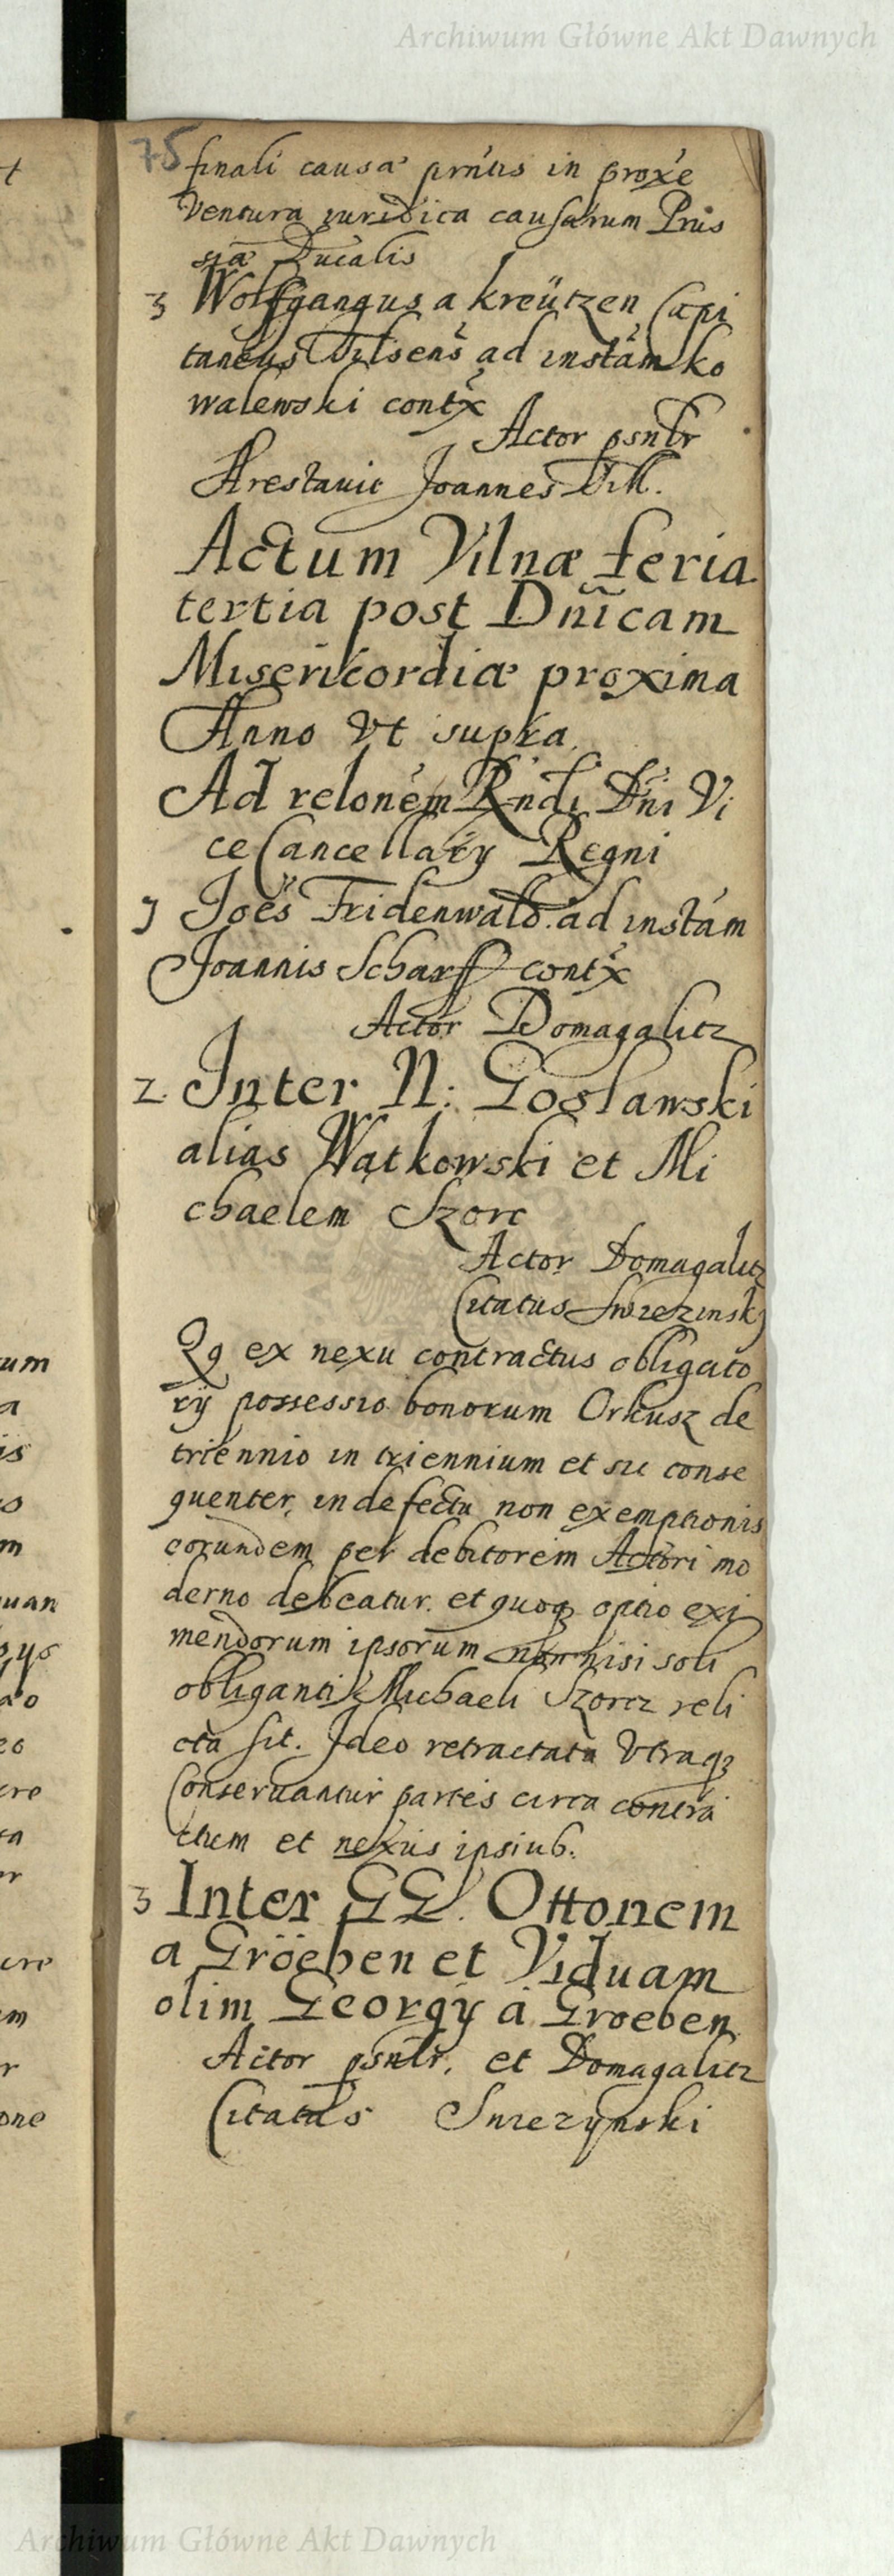 Archiwum Główne Akt Dawnych
75
finali causæ prntis in proxe
Ventura iuridica causarum Prus
siæ Ducalis
3 Wolffgangus a kreützen Capi
taneus Tilsens ad instam ko
walewski contx
Actor psnlr
Arestavit Joannes Till.
Actum Vilnæ feria
tertia post Dnicam
Misericordiæ proxima
Anno Vt supra
Ad relonem Rndi Dni Vi
ce Cancellary Regni
1 Joes Fridenwald ad instam
Joannis Scharff contx
Actor Domagalitz
2 Inter N: Goslawski
alias Wątkowski et Mi
chaelem Szorc
Actor Domagalitz
Citatus Swiezinski
Qg ex nexu contractus obligato
rÿ possessio bonorum Orkusz de
triennio in triennium et sic conse
quenter, in defectu non exemptionis
eorundem per debitorem Actori mo
derno debeatur. et quoq optio exi
mendorum ipsorum non nisi soli
obliganti Michaeli Szorcz reli
cta sit. Ideo retractata Vtraq
Conseruantur partes circa contra
ctum et nexus ipsius.
3 Inter GG. Ottonem
a Gröeben et Viduam
olim Georgÿ à Groeben
Actor psnlr, et Domagalitz
Citatus Swiezynski
t
um
a
is
o
m
uan
eo
cre
ta
er
cre
m
r
one
Archiwum Główne Akt Dawnych